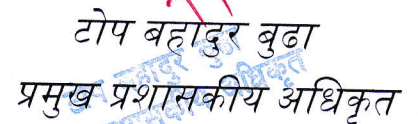 टोप बहादुर बुढा
प्रमुख प्रशासकीय अधिकृत